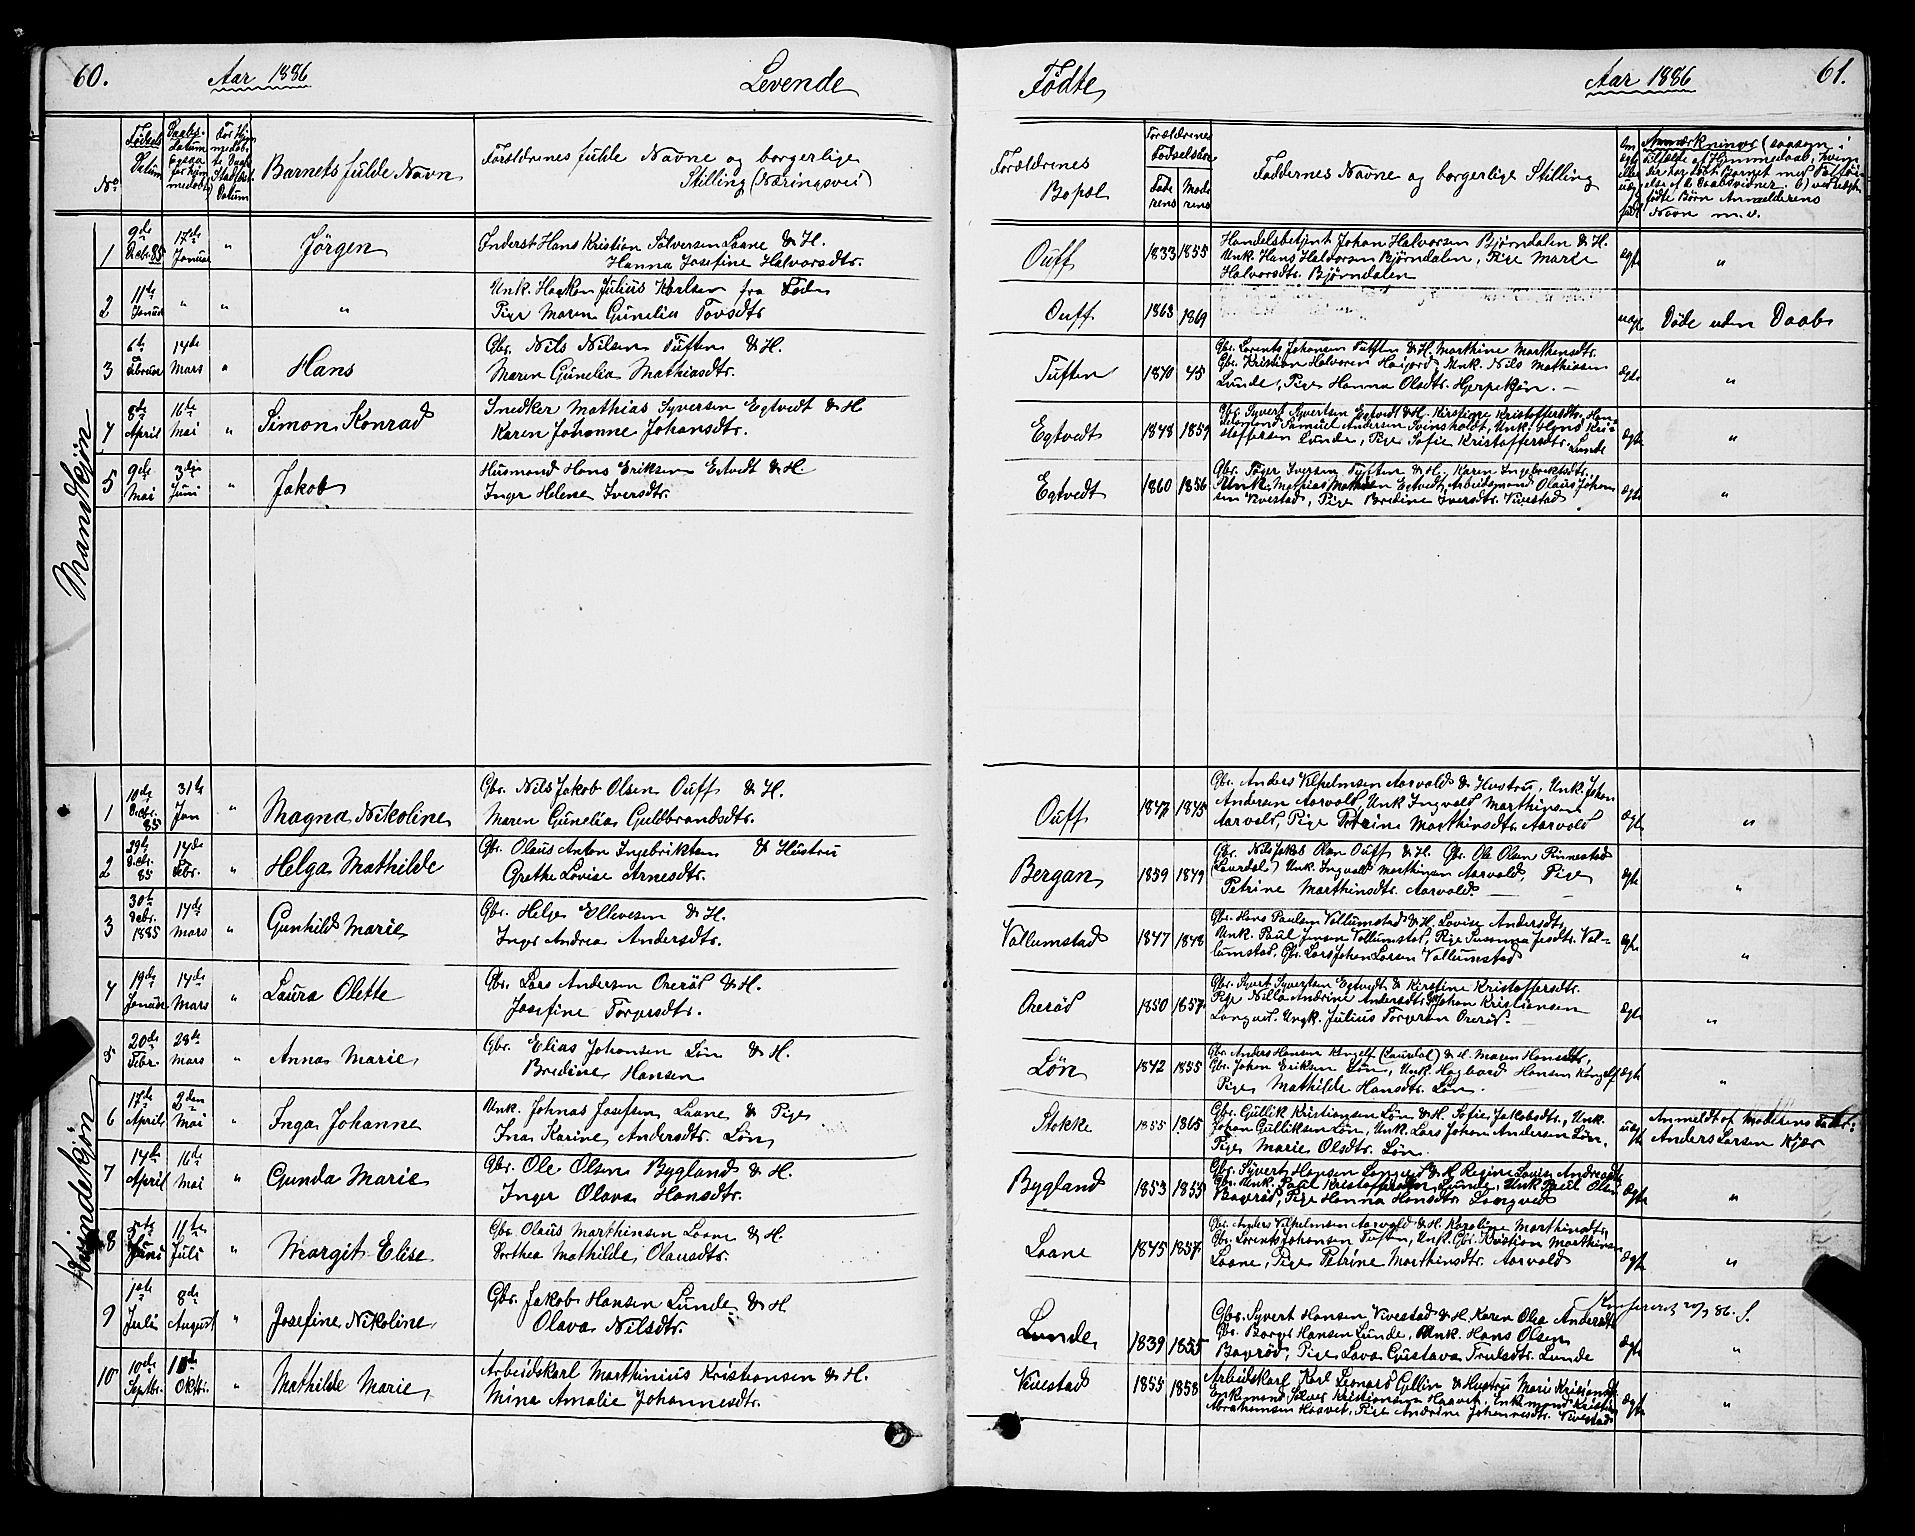 60.
Aar 1886
Levende
No
Fødsels
Datum
Daabs-
Datum
Barnets fulde Navn
Forældrenes fulde Navne og borgerlige
Stilling (Næringsvei)
Mandkjøn
1
9de
Decbr. 85
17de
Januar
"
Jörgen
Inderst Hans Kristian Sölversen Laane & H.
Hanna Josefine Halvorsdtr.
2
11de
Januar
"
"
"
Unk. Haakon Julius Karlsen fra
Pige Maren Gunelia Tovsdtr
3
Februar
14de
Mars
"
Hans
Gbr. Nils Nilsen Tuften & H.
Maren Gunelia Mathiasdtr.
4
8de
April
16de
Mai
"
Simon Konrad
Snedker Mathias Syversen Egtvedt & H
Karen Johanne Johansdtr.
5
9de
Mai
3dje
Juni
"
Jakob
Husmand Hans Eriksen Egtvedt & H.
Inger Helene Iversdtr.
Kvindekjøn
1
10de
Decbr.
85
31te
Jan
"
Magna Nikoline
Gbr. Nils Jakob Olsen Ouff & H.
Maren Gunelia Guldbrandsdtr.
2
29de
Decbr.
85
14de
Febr.
"
Helga Mathilde
Gbr. Olaus Anton Ingebriktsen & Hustru
Grethe Lovise Arnesdtr.
3
30te
Decbr.
1885
14de
Mars
"
Gunhild Marie
Gbr. Helge Ellevesen & H.
Inger Andrea Andersdtr.
4
19de
Januar
14de
Mars
"
Laura Olette
Gbr. Lars Andersen Orerød & H.
Josefine Torgersdtr.
5
20de
Febr.
28de
Mars
"
Anna Marie
Gbr. Elias Johansen Løn & H.
Bredine Hansen
6
17de
April
2den
Mai
"
Inga Johanne
Unk. Johnas Josefsen Laane & Pige
Ina Karine Andersdtr. Løn
7
14de
April
16de
Mai
"
Gunda Marie
Gbr. Ole Olsen Bygland & H.
Inger Olava Hansdtr.
8
5te
Juni
11te
Juli
"
Margit Elise
Gbr. Olaus Marthinsen Laane & H
Dorthea Mathilde Olausdtr.
9
1ste
Juli
8de
August
"
Josefine Nikoline
Gbr. Jakob Hansen Lunde & H
Olava Nilsdtr.
10
10de
Septbr.
10de
Oktbr.
"
Mathilde Marie
Arbeidskarl Marthinius Kristiansen & H.
Mina Amalie Johannesdtr.
Fødte
Aar 1886
61.
Forældrenes
Bopæl
Forældrenes
Fødselsaar
Fade
rens
Mode
rens
Faddernes Navne og borgerlige Stilling
Om
ægte
eller
uæg
te
født
Anmærkninger (saasom i
Tilfælde af Hjemmedaab, hvem
født Børn Anmelderens
Navn m. v.
Ouff
1833
1855
Handelsbetjent Johan Halvorsen Bjørndalen & H.
Unk. Hans Halvorsen Bjørndalen, Pige Marie
Halvorsdtr. Bjørndalen
ægte
"
Ouff
1863
1869
uægte
Døde uden Daab
Tuften
1840
45
Gbr. Lorents Johansen Tuften & H. Marthine Marthinsdtr.
Gbr. Kristian Halvorsen Høijord, Unk. Nils Mathiasen
Lunde, Pige Hanna Olsdtr.
ægte
"
Egtvedt
1848
1859
Gbr. Syvert Syvertsen Egtvedt & H. Kirstine Kristoffersdtr.
Samuel Andersen Svinsholdt, Unk. Hans Kri-
stoffersen Lunde, Pige Sofie Kristoffersdtr. Lunde
ægte
"
Egtvedt
1860
1856
Gbr. Iversen Tuften & H. Karen Ingebriktsdtr.
Unk. Mathias Egtvedt, Arbeidsmand Olaus Johan
sen Vivestad, Pige Bredine Iversdtr. Vivestad
ægte
"
Ouff
1847
1845
Gbr. Anders Vilhelmsen Aarvold & Hustru, Unk. Johan
Andersen Aarvold, Unk Ingvald Marthinsen
Aarvold, Pige Petrine Marthinsdtr. Aarvold
ægte
"
Bergan
1859
1849
Gbr. Nils Jakob Olsen Ouff & H. Gbr. Ole Olsen Rinnestad
(Laurdal) Unk. Ingvald Marthinsen Aarvold, Pige
Petrine Marthinsdtr. Aarvold
ægte
"
Vollumstad
1847
1848
Gbr. Hans Paulsen Vollumstad & H. Lovise Andersdtr,
Unk. Paul Jensen Vollumstad, Pige Susanna Jensdtr. Vol-
lumstad, Gbr. Lars Johan Larsen Vollumstad
ægte
"
Orerød
1850
1857
Gbr. Syvert Syvertsen Egtvedt & Kirstine Kristoffersdtr.
Pige Nilla Andrine Andersdtr, Johan Kristiansen
Langved. Ungk. Julius Torgersen Orerød
ægte
"
Løn
1842
1855
Gbr. Anders Hansen Kongelf (Laurdal) & H. Maren Hansdtr,
Gbr. Johan Eriksen Løn, Unk. Hagbard Hansen Kongelf
Pige Mathilde Hansdtr. Løn
ægte
"
Stokke
1855
1865
Gbr. Gullik Kristiansen Løn & H. Sofie Jakobsdtr, Unk.
Johan Gulliksen Løn, Unk. Lars Johan Andersen Løn,
Pige Marie Olsdtr. Løn
uægte
Anmeldt af Moderens Fader:
Anders Larsen Kjær
Bygland
1853
1855
Gbr. Syvert Hansen Langved & H. Regine Lovise Andreasdtr
Unk. Paul Kristoffersen Lunde, Unk Paul Olsen
Bøverød, Pige Hanna Hansdtr. Langved
ægte
"
Laane
1845
1857
Gbr. Anders Vilhelmsen Aarvold & H. Karoline Marthinsdtr,
Gbr. Lorents Johansen Tuften, Unk. Gbr. Kristian Marthinsen
Laane, Pige Petrine Marthinsdtr. Aarvold
ægte
"
Lunde
1839
1855
Gbr. Syvert Hansen Vivestad & H Karen Olea Andersdtr
Gbr. Borger Hansen Lunde, Unk. Hans Olsen
Bøverød, Pige Lava Gustava Trulsdtr. Lunde
ægte
Konfereret 20/9 86. S.
"
Vivestad
1855
1858
Arbeidskarl Karl Leonard Gullin & Hustru Marie Kristiansdtr
Enkemand Kristiansen Haavet, Enkemand Kristian
Abrahamsen Haavet, Pige Andrine Johannesdtr. Vivestad
ægte
"